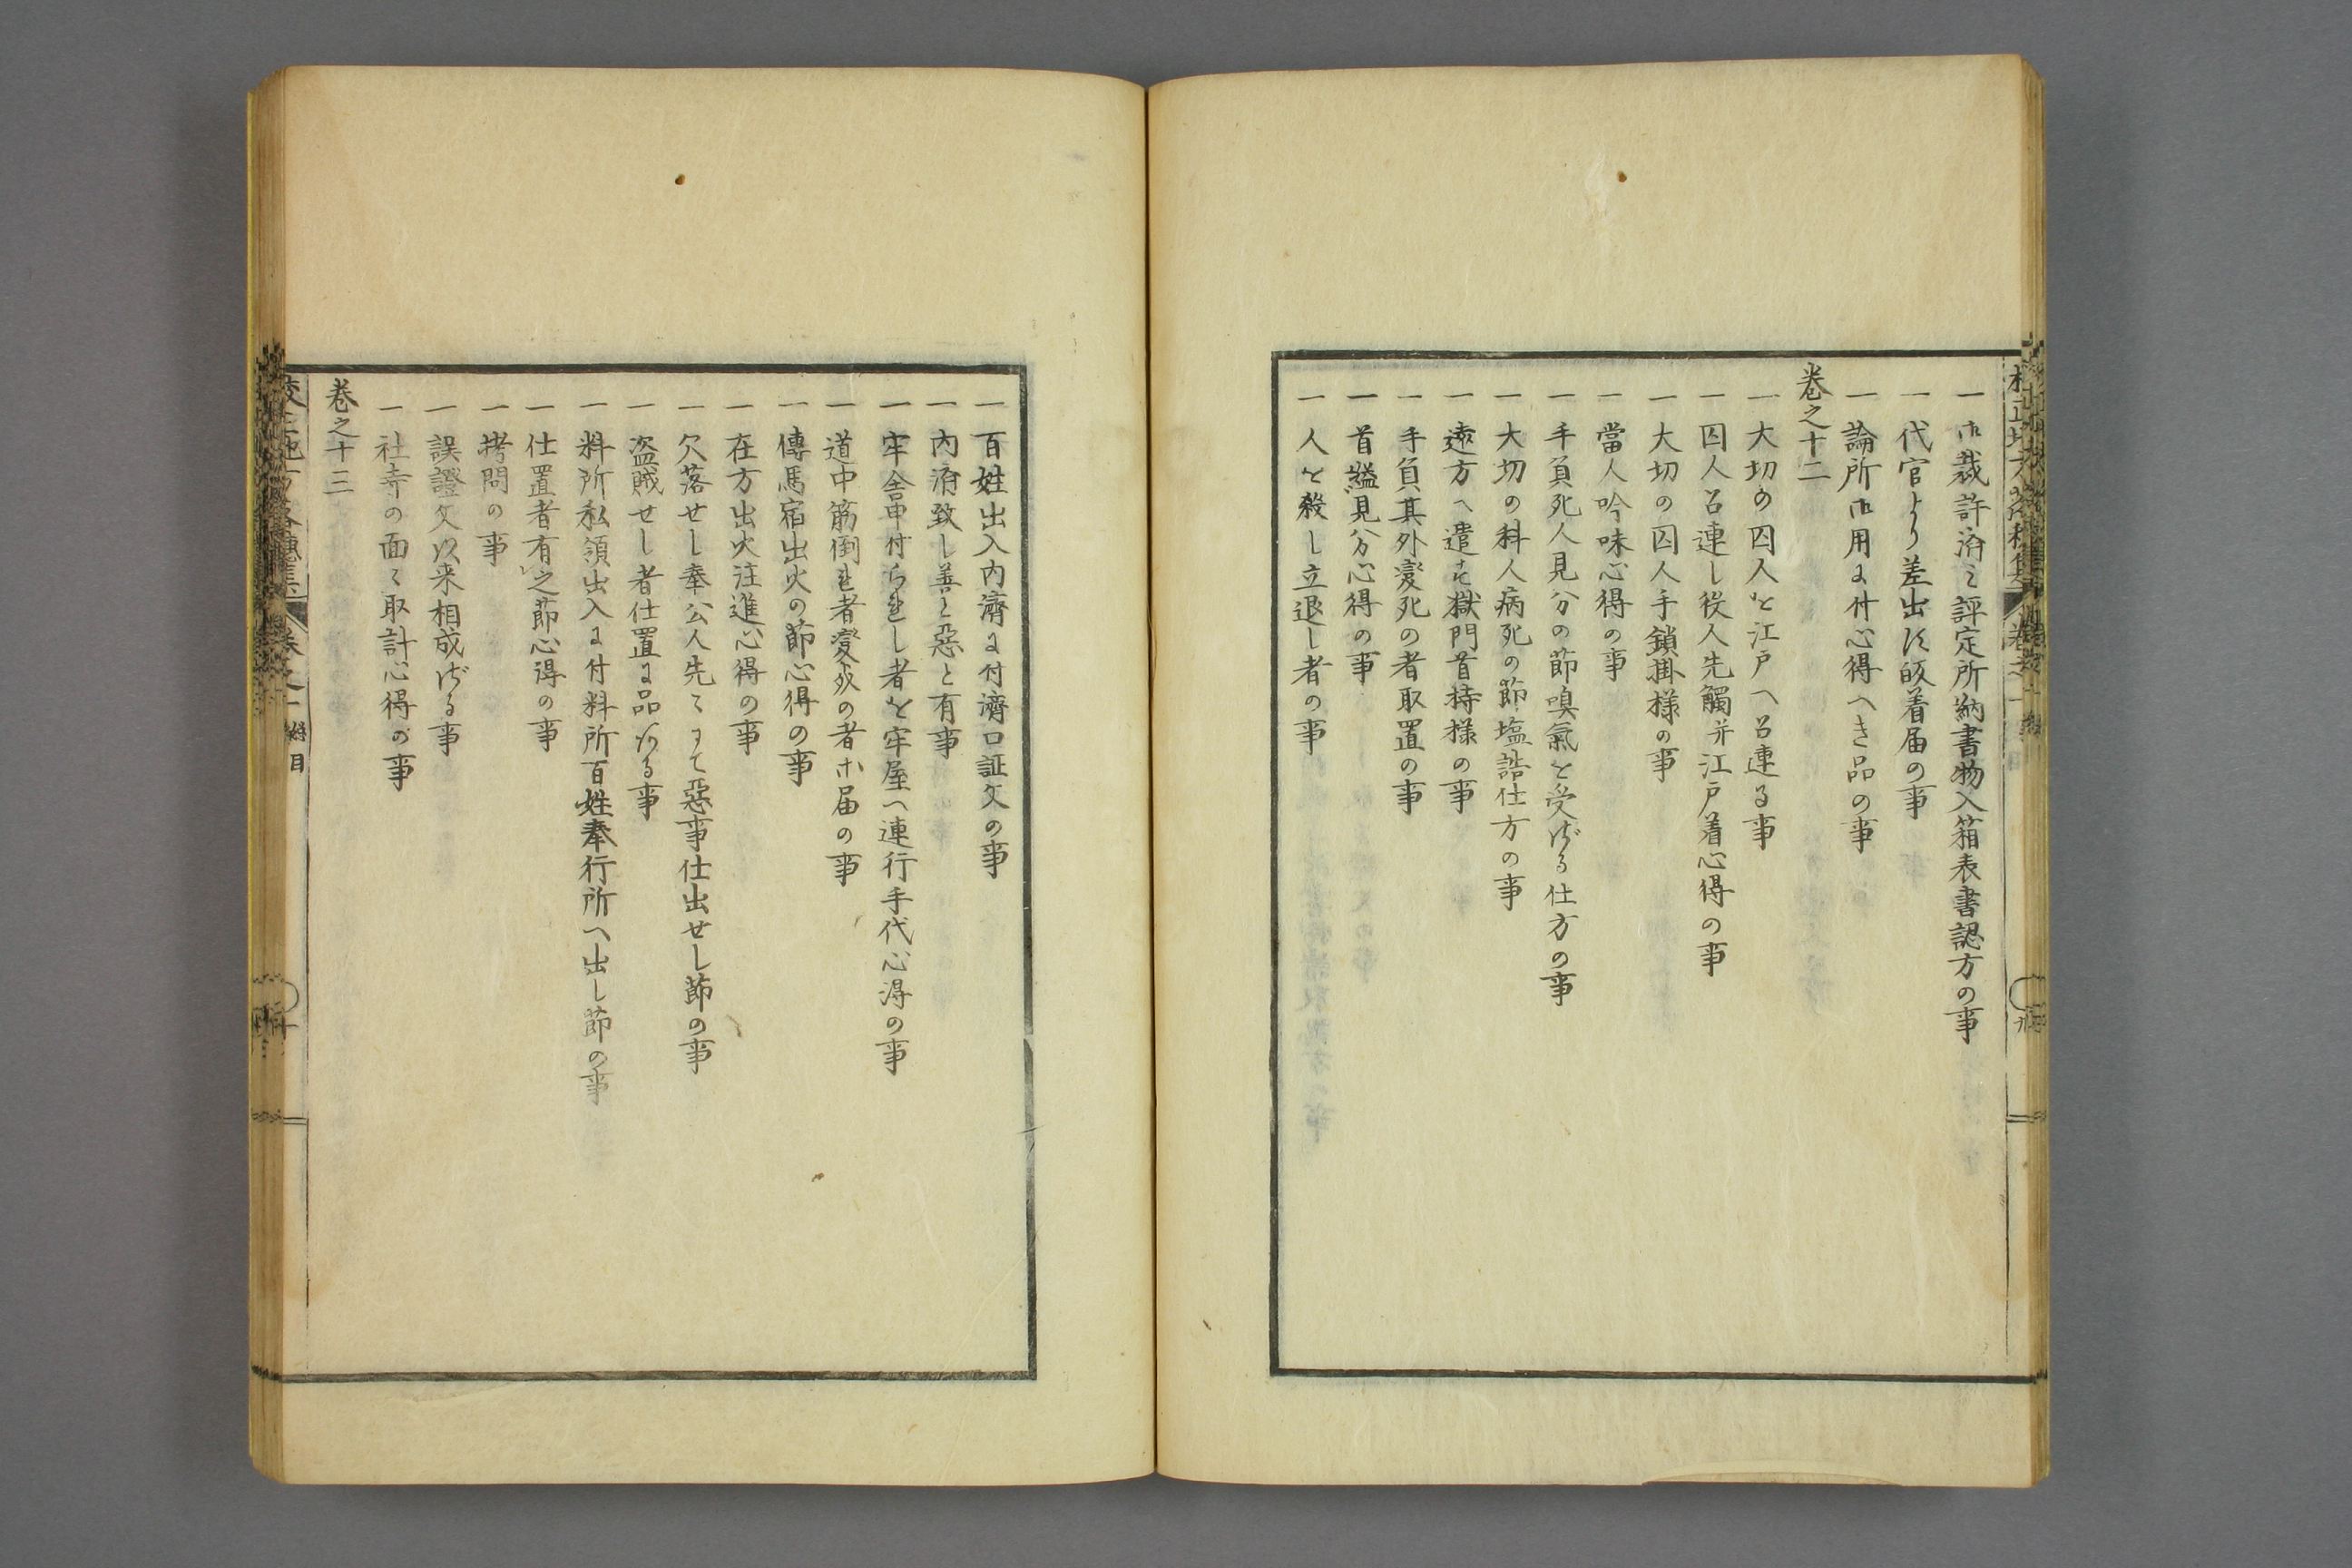 一御裁許済之評定所納書物入箱表書認方の事
一代官より差出候帳着届の事
一論所御用に付心得へき品の事
巻之十二
一大切の囚人を江戸へ召連る事
一囚人召連し役人先觸并江戸着心得の事
一大切の囚人手鎖掛様の事
一當人吟味心得の事
一手負死人見分の節嗅氣を受ざる仕方の事
一大切の科人病死の節塩詰仕方の事
一遠方へ遣す獄門首持様の事
一手負其外変死の者取置の事
一首縊見分心得の事
一人を殺し立退し者の事
一百姓出入内濟に付濟口証文の事
一内済致し善と惡と有事
一牢舎申付られし者を牢屋へ連行手代心得の事
一道中筋倒れ者変死の者ホ届の事
一傳馬宿出火の節心得の事
一在方出火注進心得の事
一欠落せし奉公人先々にて惡事仕出せし節の事
一盗賊せし者仕置に品ある事
一料所私領出入に付料所百姓奉行所へ出し節の事
一仕置者有之節心得の事
一拷問の事
一誤證文以来相成ざる事
一社寺の面々取計心得の事
巻之十三